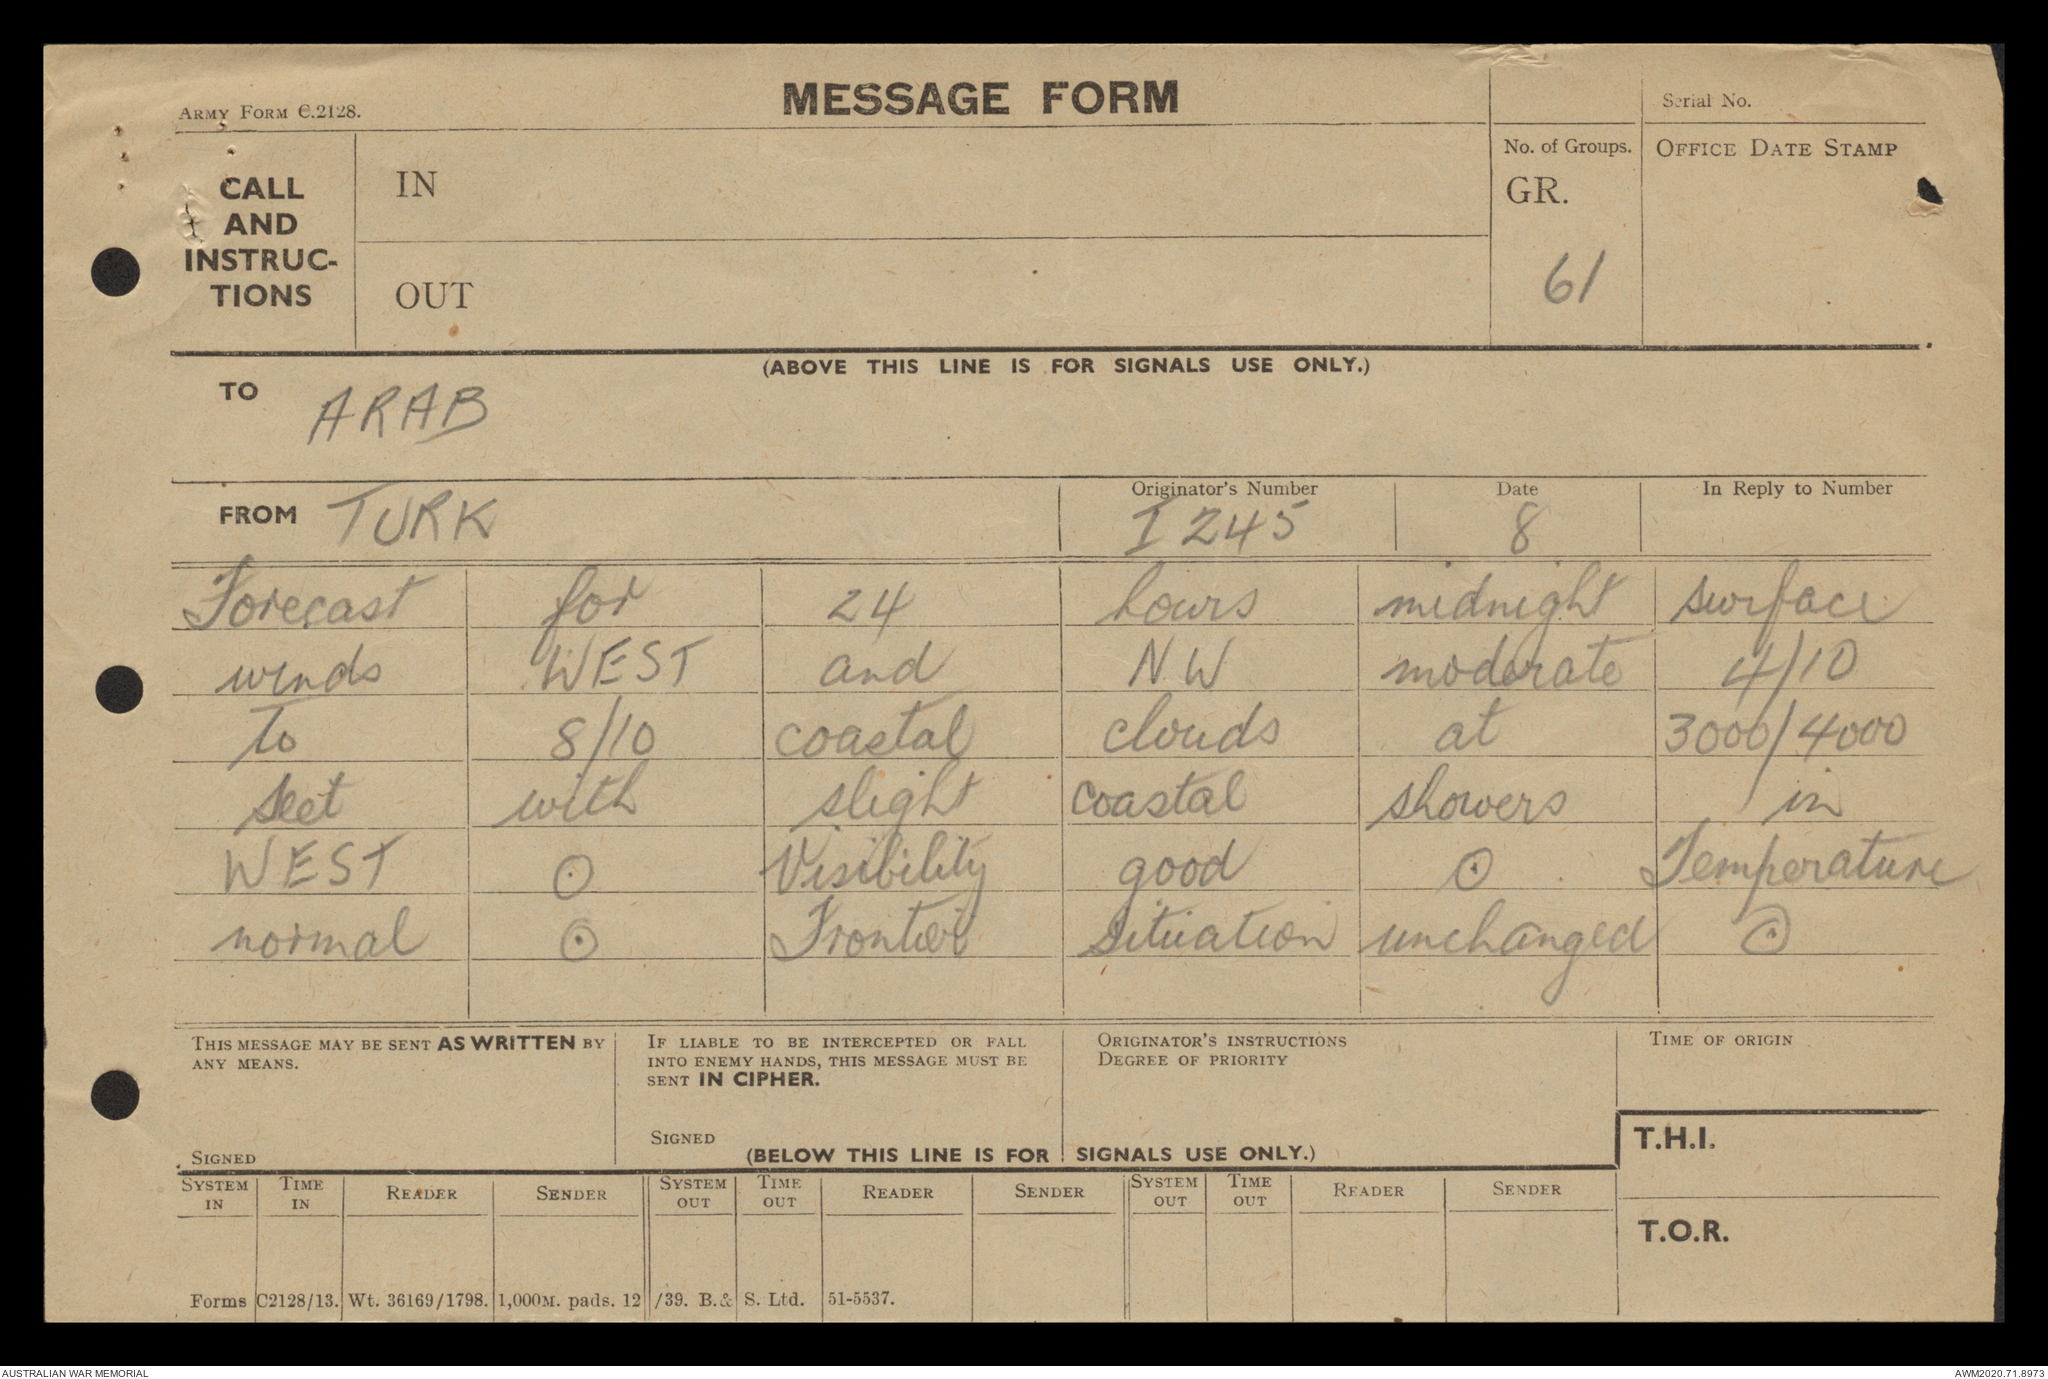 MESSAGE FORM
ARMY FORM C.2128.
Serial No.
CALL AND INSTRUC-TIONS
IN
OUT
No. of Groups.
GR.
61
OFFICE DATE STAMP
(ABOVE THIS LINE IS FOR SIGNALS USE ONLY.)
TO ARAB
FROM TURK
Originator's Number
I 245
Date
8
In Reply to Number
Forecast for 24 hours midnight surface
winds WEST and N.W moderate 4/10
to 8/10 coastal clouds at 3000/4000
feet with slight coastal showers in
WEST ⊙ Visibility good ⊙ Temperature
normal ⊙ Frontier situation unchanged ⊙
THIS MESSAGE MAY BE SENT AS WRITTEN BY
ANY MEANS.
SIGNED
IF LIABLE TO BE INTERCEPTED OR FALL
INTO ENEMY HANDS, THIS MESSAGE MUST BE
SENT IN CIPHER.
SIGNED
ORIGINATOR'S INSTRUCTIONS
DEGREE OF PRIORITY
TIME OF ORIGIN
(BELOW THIS LINE IS FOR SIGNALS USE ONLY.)
T.H.I.
T.O.R.
SYSTEM IN TIME IN READER SENDER SYSTEM OUT TIME OUT READER SENDER SYSTEM OUT TIME OUT READER SENDER
Forms C2128/13. Wt. 36169/1798. 1,000M. pads. 12/39. B.& S. Ltd. 51-5537.
AUSTRALIAN WAR MEMORIAL
AWM2020.71.8973